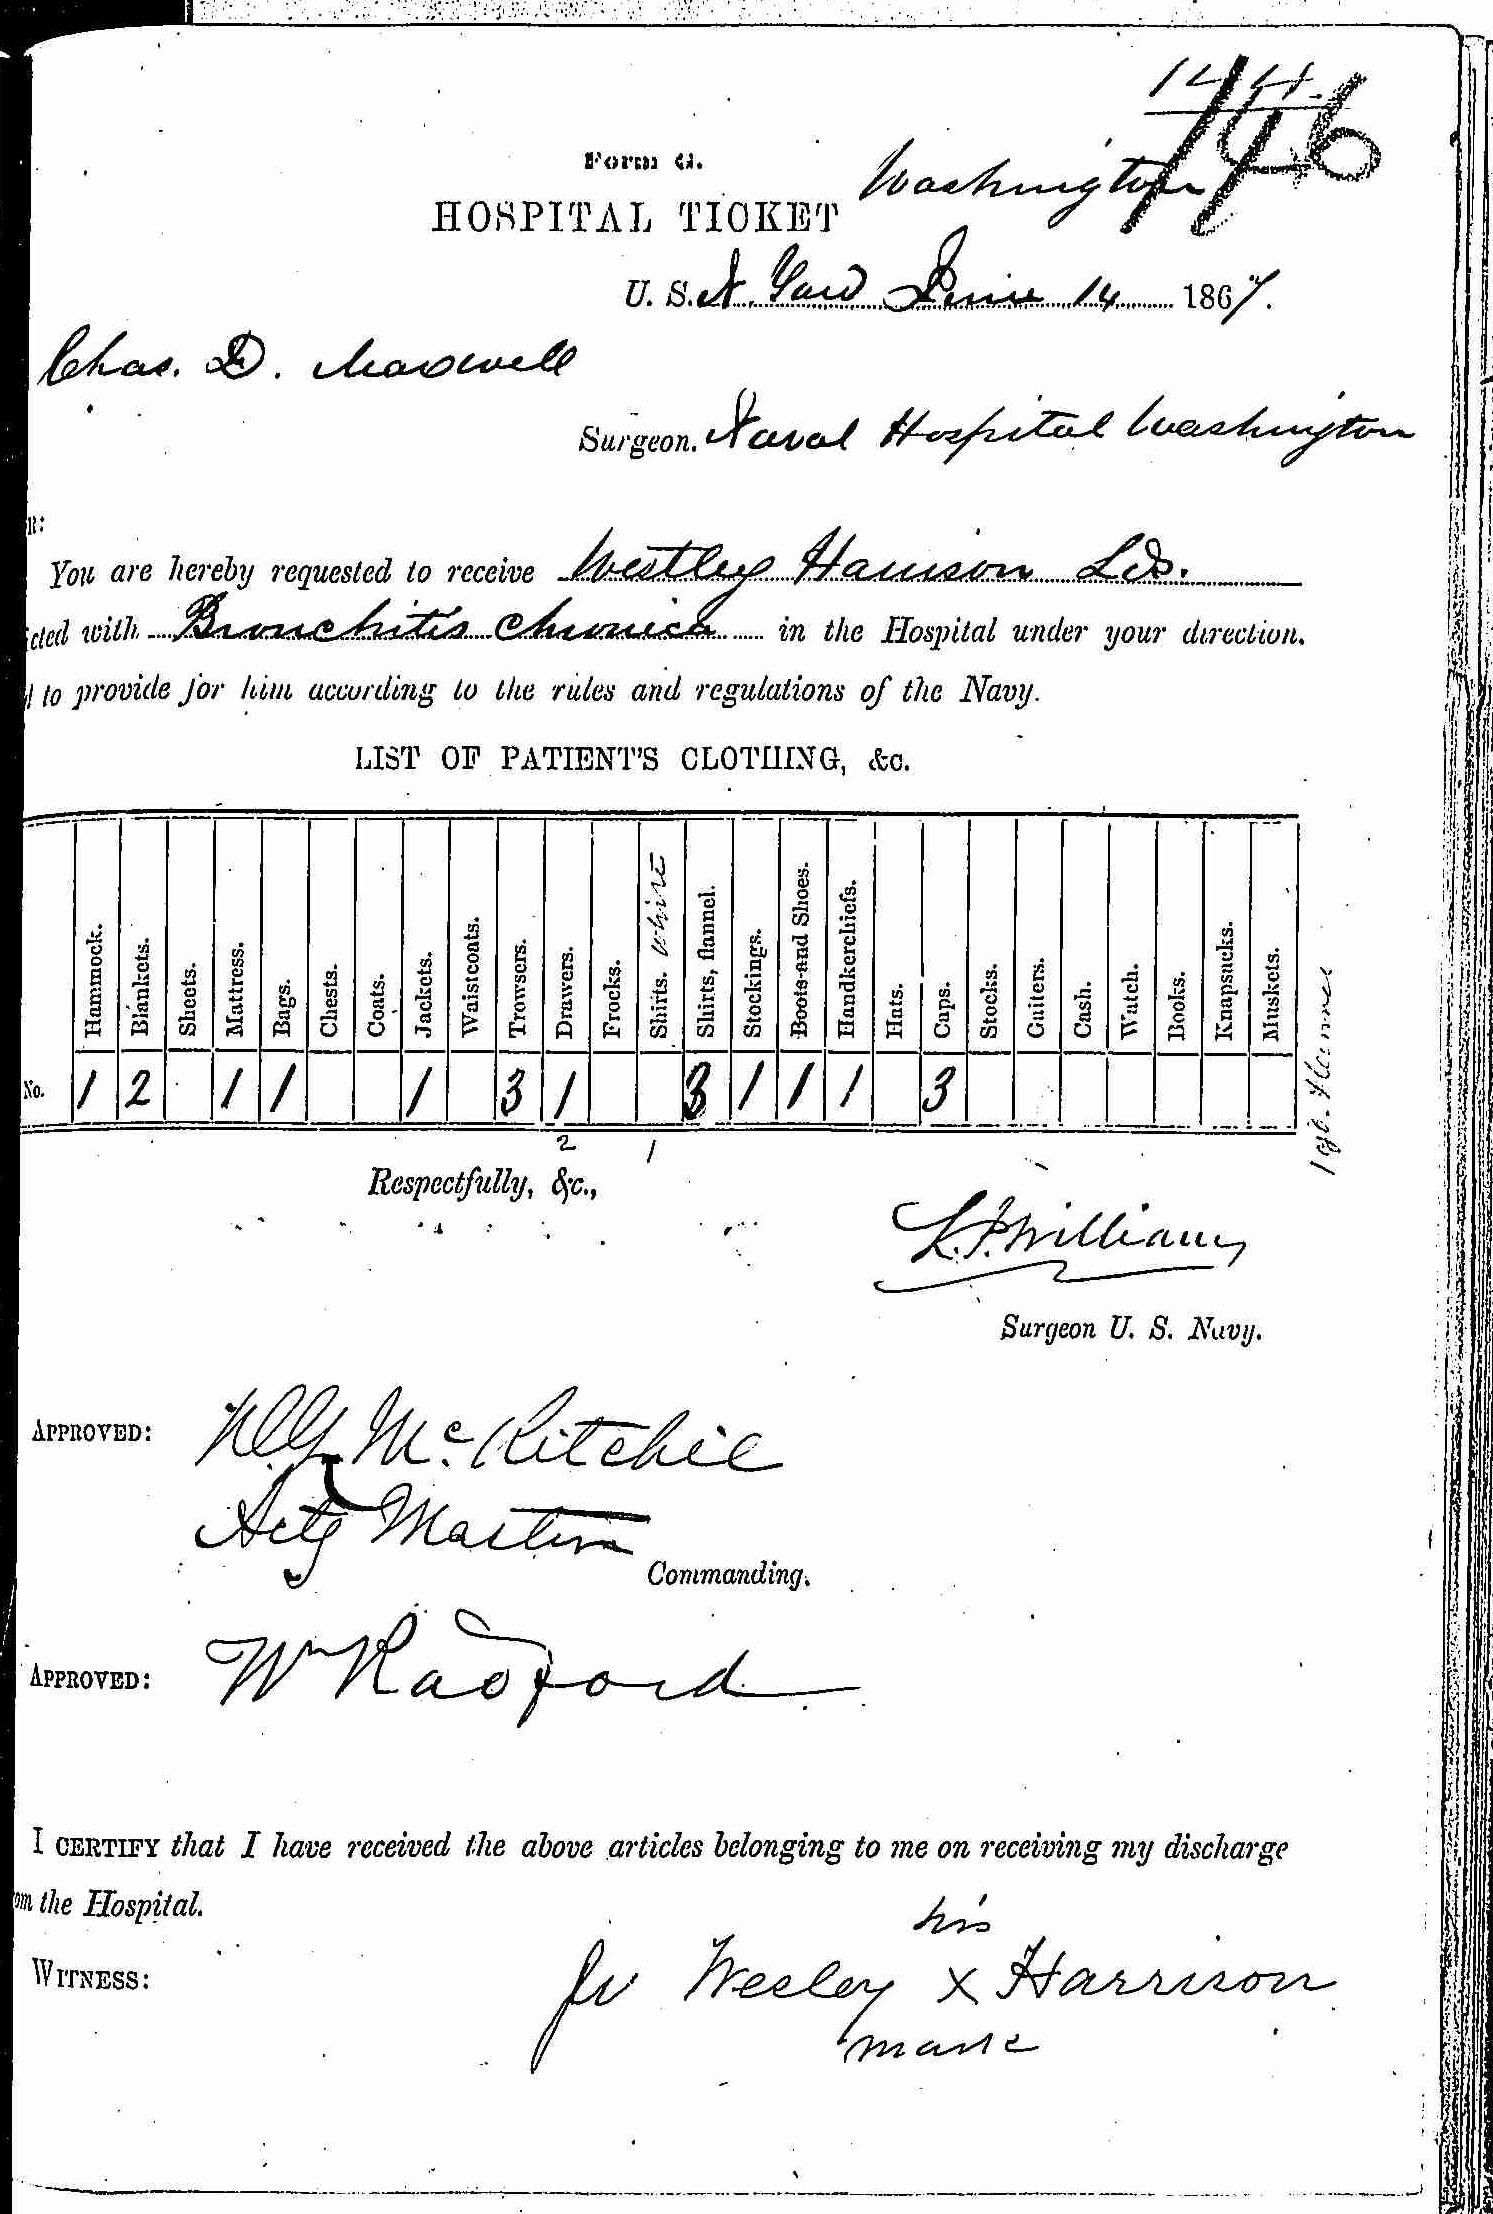 144
146
Form G.
HOSPITAL TICKET
Washington
U. S. N. Yard June 14 1867.
Chas. D. Maxwell
Surgeon. Naval Hospital Washington
R:
You are hereby requested to receive Westley Harrison Lds.
icted with Bronchitis Chronica in the Hospital under your direction.
to provide for him according to the rules and regulations of the Navy.
LIST OF PATIENT'S CLOTHING, &c.
Hammock. Blankets. Sheets. Mattress. Bags. Chests. Coats. Jackets. Waistcoats. Trowsers. Drawers. Frocks. Shirts. white Shirts, flannel. Stockings. Boots and Shoes. Handkerchiefs. Hats. Caps. Stocks. Gaiters. Cash. Watch. Books. Knapsacks. Muskets.
No. 1 2 1 1 1 3 1 3 1 1 1 3
2 1
Respectfully, &c.,
L. J. Williams
Surgeon U. S. Navy.
APPROVED: McRitchie
Actg Master
Commanding.
APPROVED: Wm Radford
I CERTIFY that I have received the above articles belonging to me on receiving my discharge
om the Hospital.
his
WITNESS: Wesley x Harrison
mark